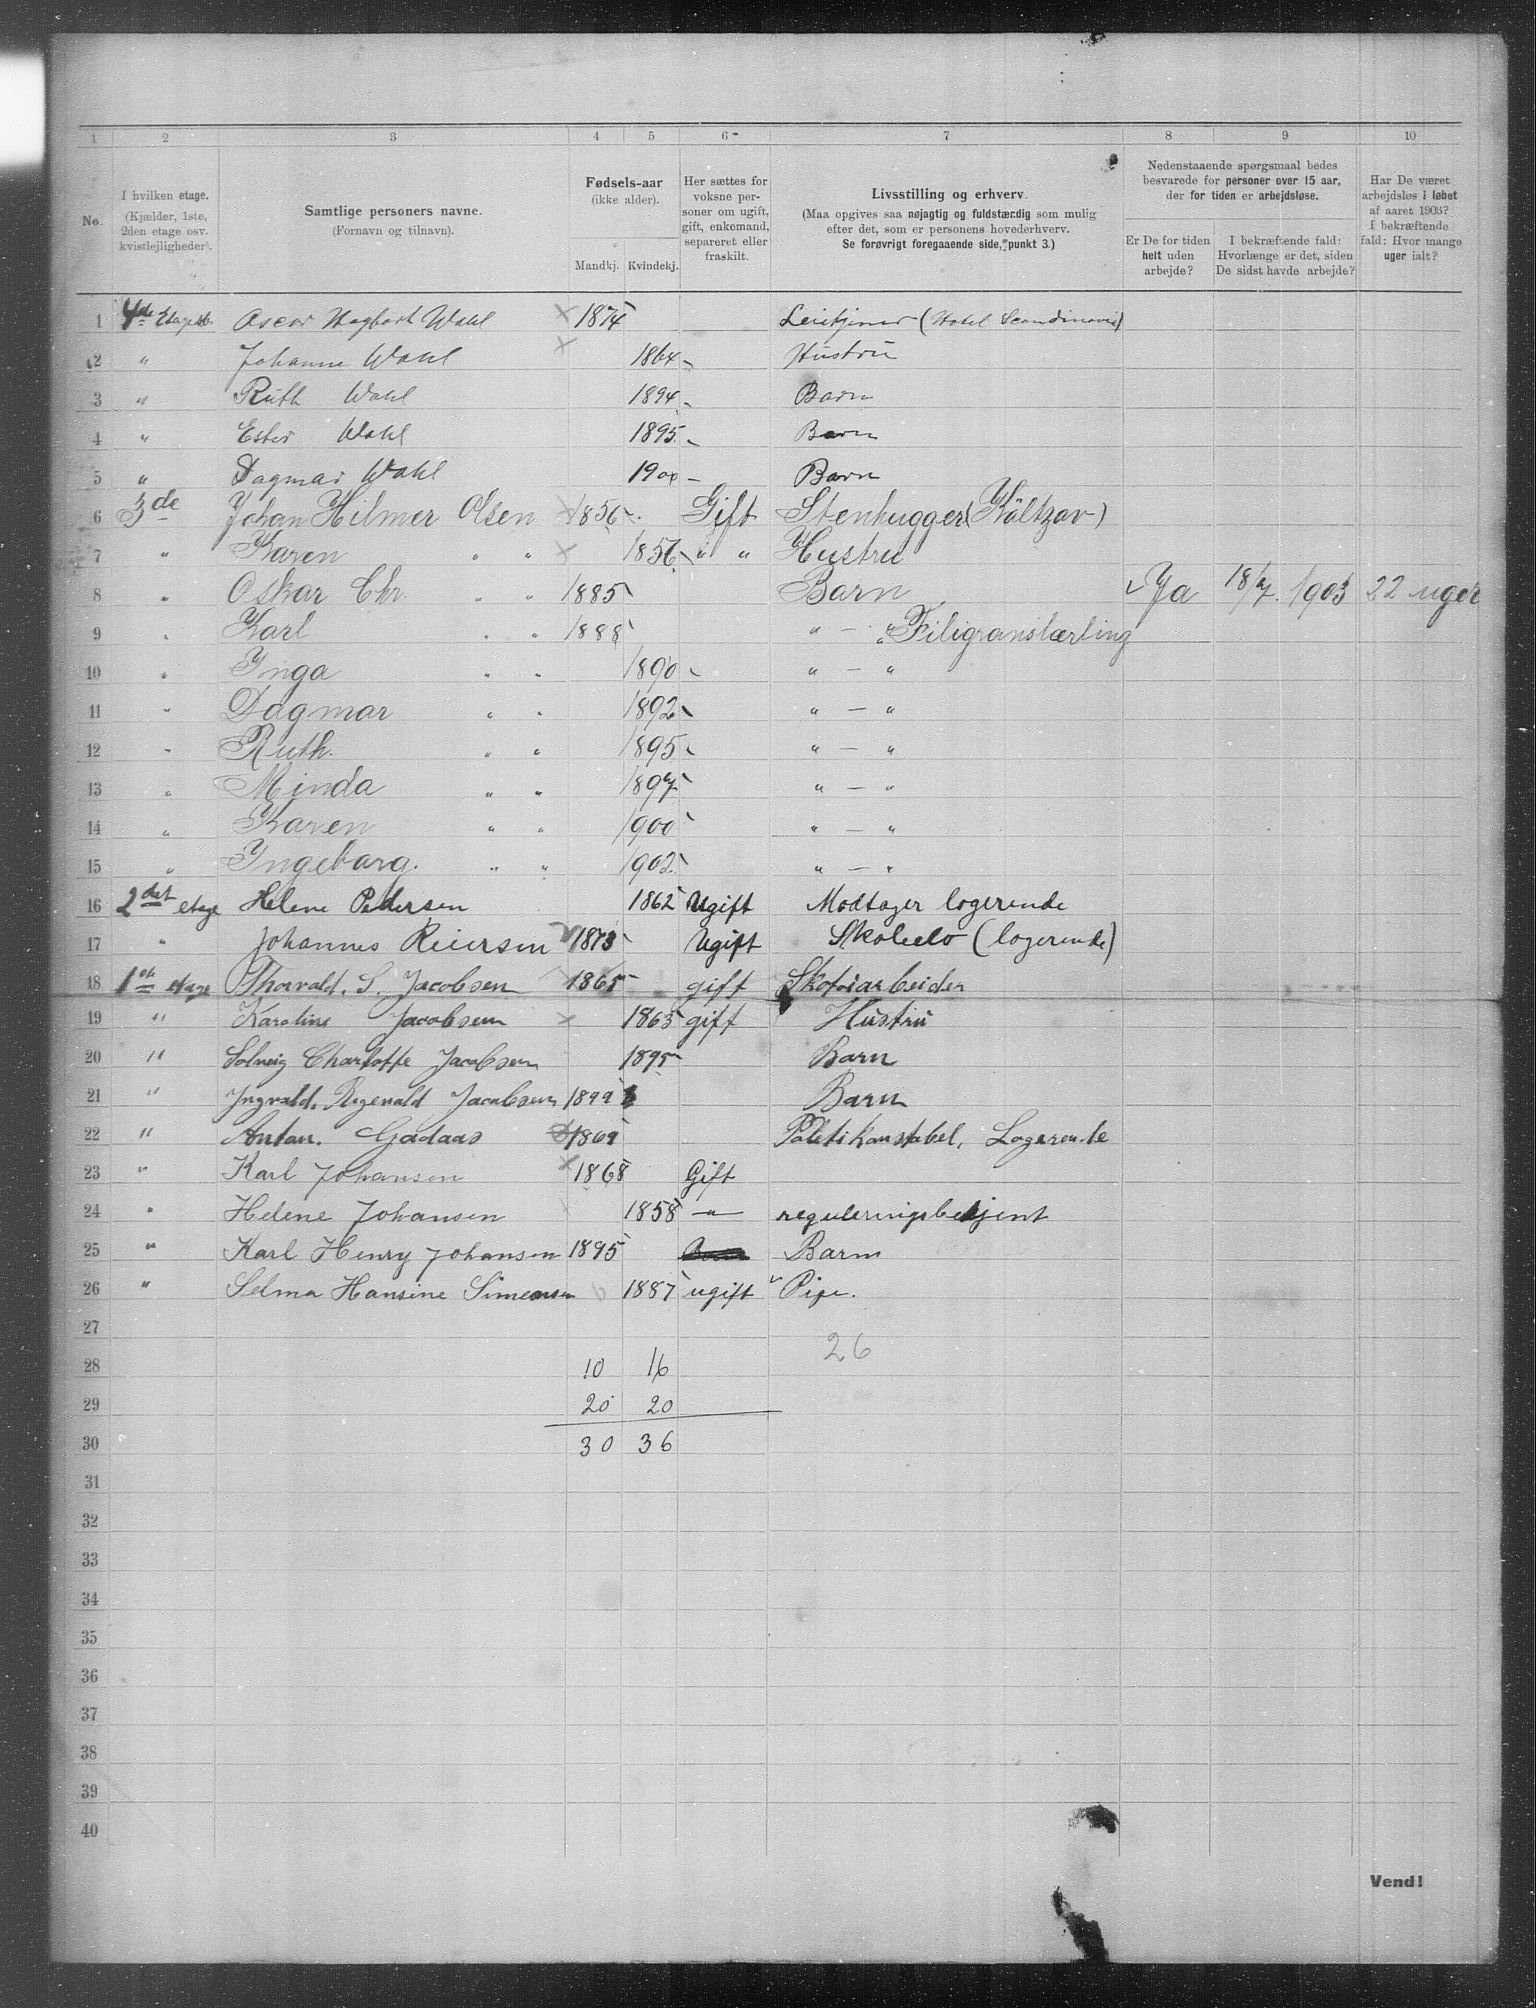 1 2 3 4 5 6 7 8 9 10
No.
I hvilken etage.
(Kjælder, 1ste,
2den etage osv.
kvistlejligheder).
Samtlige personers navne.
(Fornavn og tilnavn).
Fødsels-aar
(ikke alder).
Mandkj. Kvindekj.
Her sættes for
voksne per-
soner om ugift,
gift, enkemand,
separeret eller
fraskilt.
Livsstilling og erhverv.
(Maa opgives saa nøjagtig og fuldstærdig som mulig
efter det, som er personens hovederhverv.
Se forøvrigt foregaaende side, punkt 3.)
Nedenstaaende spørgsmaal bedes
besvarede for personer over 15 aar,
der for tiden er arbejdsløse.
Er De for tiden
helt uden
arbejde?
I bekræftende fald:
Hvorlænge er det, siden
De sidst havde arbejde?
Har De været
arbejdsløs i løbet
af aaret 1903?
I bekræftende
fald: Hvor mange
uger ialt?
1 4de Etage Oscar Hagbart Wahl 1874 (Hotel Scandinavie)
2 " Johanne Wahl 1864 Hustru
3 " Ruth Wahl 1894 Barn
4 " Ester Wahl 1895 Barn
5 " Dagmar Wahl 1900 Barn
6 3de Johan Hilmer Olsen 1856 Gift Stenhugger
7 " Karen " " 1856 " " Hustru
8 " Oskar Chr. " " 1885 Barn Ja 18/7. 1903 22 uger
9 " Karl " " 1888 " — " Filigranslærling
10 " Inga " " 1890 " — "
11 " Dagmar " " 1892 " — "
12 " Ruth. " " 1895 " — "
13 " Minda " " 1897 " — "
14 " Karen " " 1900 " — "
15 " Ingeborg. " " 1902 " — "
16 2det etage Helene Pedersen 1862 Ugift Modtager logerende
17 " Johannes Reiersen 1873 Ugift (logerende)
18 1st etage Thorvald. S. Jacobsen 1865 gift Skotøiarbeider
19 " Karoline Jacobsen 1865 gift Hustru
20 " Solveig Charlotte Jacobsen 1895 Barn
21 " Ingvald. Jacobsen 1899 Barn
22 " Anton. Gadaas 1869 Politikonstabel, Logerende
23 " Karl Johansen 1868 Gift
24 " Helene Johansen 1858 — " —
25 " Karl Henry Johansen 1895 Barn
26 " Selma Hansine Simensen 1887 ugift Pige.
27 26
28 10 16
29 20 20
30 30 36
31
32
33
34
35
36
37
38
39
40
Vend!